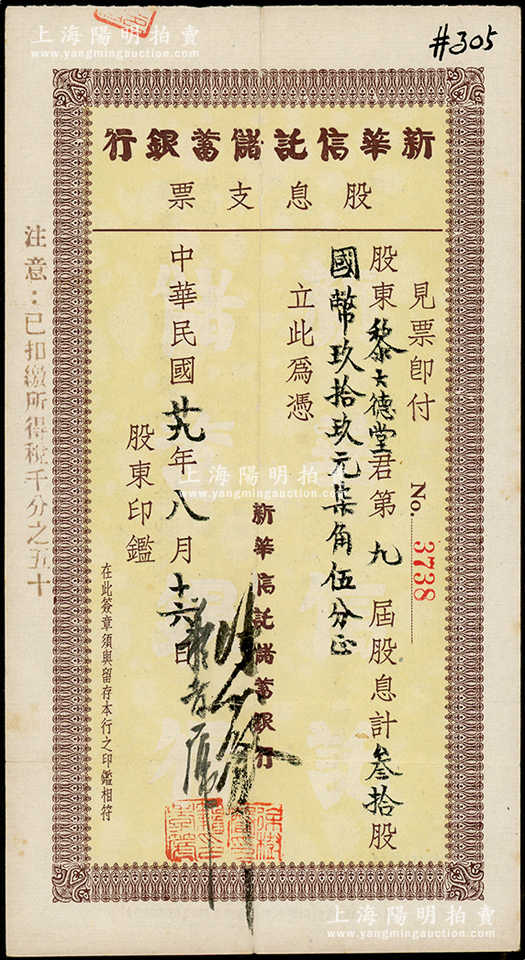 上海陽明拍賣
www.yangmingauction.com
#305
行銀蓄儲託信華新
票支息股
見票卽付
No. 3738
股東黎大德堂君第九屆股息計叁拾股
國幣玖拾玖元柒角伍分正
立此爲憑
新華信託儲蓄銀行
中華民國廿九年八月十六日
股東印鑑
在此簽章須與留存本行之印鑑相符
注意：已扣繳所得稅千分之五十
上海陽明拍賣
www.yangmingauction.com
上海陽明拍賣
www.yangmingauction.com